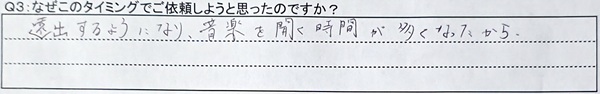 Q3:なぜこのタイミングでご依頼しようと思ったのですか?
遠出するようになり、音楽を聞く時間が多くなったから.